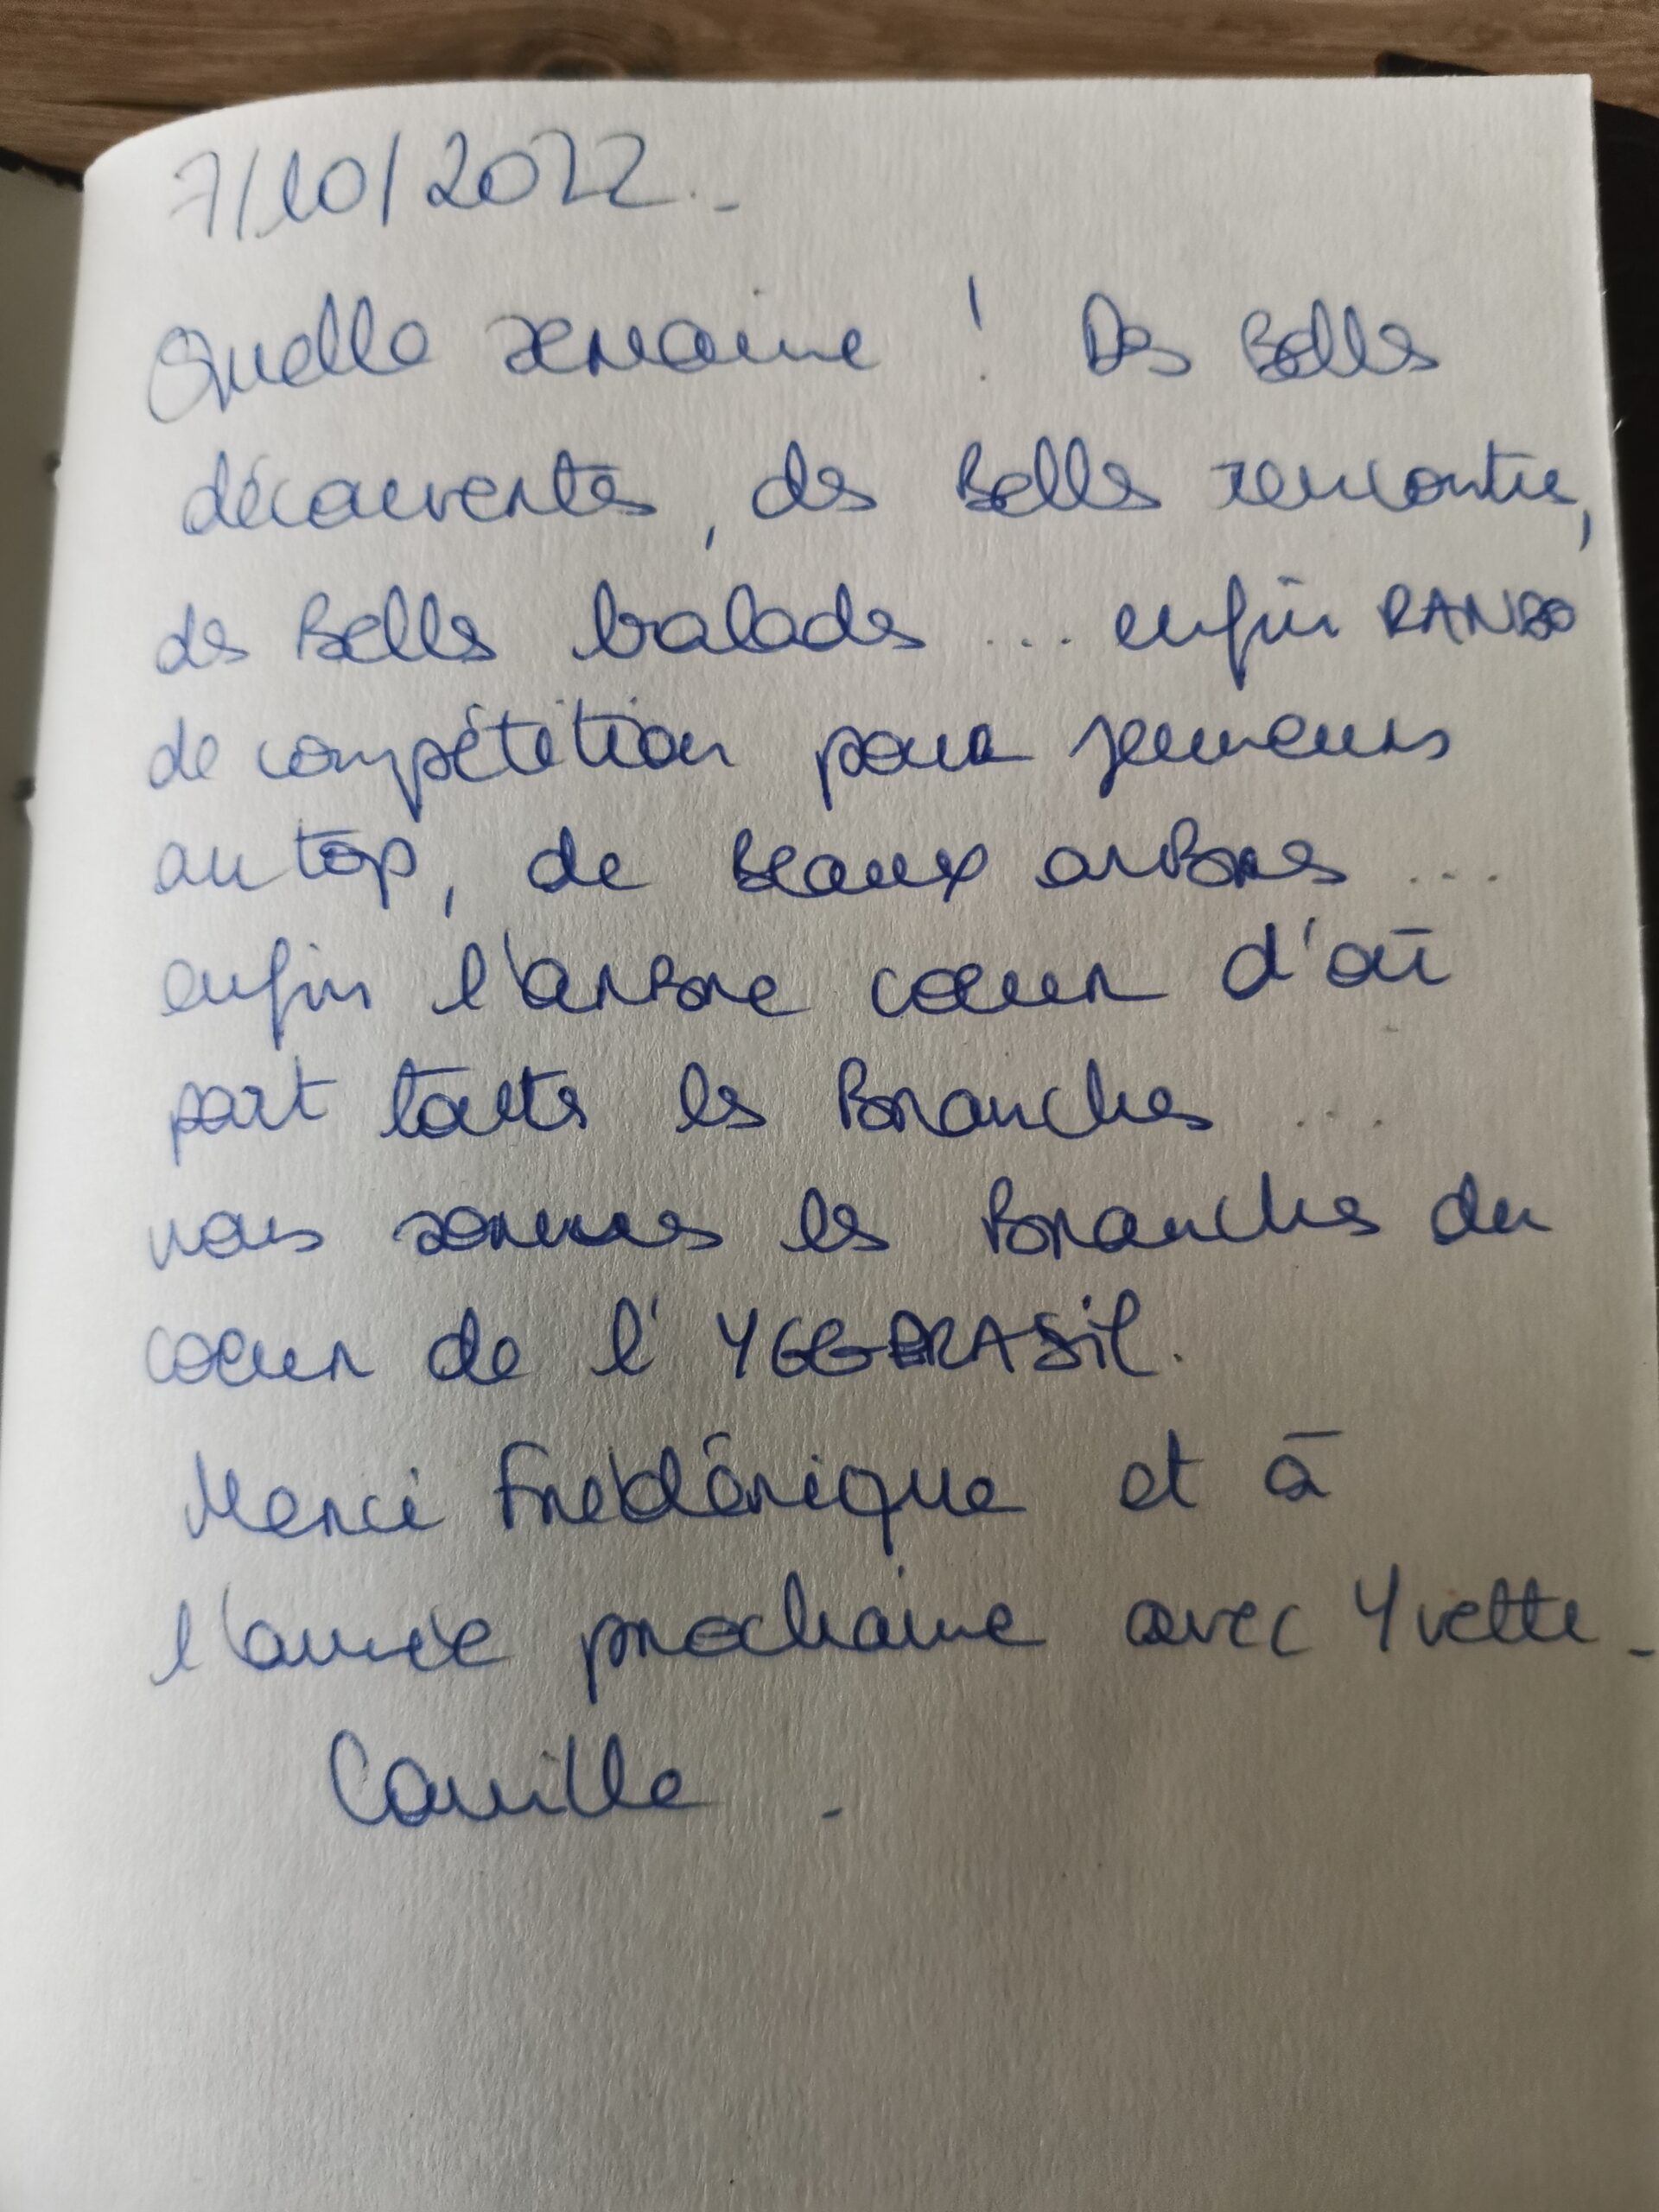 7/10/2022.-
Quelle semaine ! Des Belles
découvertes, des Belles rencontres,
des Belles balades ... enfin RANDO
de compétition pour jumeurs
au top, de Beaux arBres ...
enfin l'arBre coeur d'où
part toutes les Branches ...
nous sommes les Branches du
coeur de l'YGGDRASil.
Merci Frédérique et à
l'année prochaine avec Yvette -
Camille -